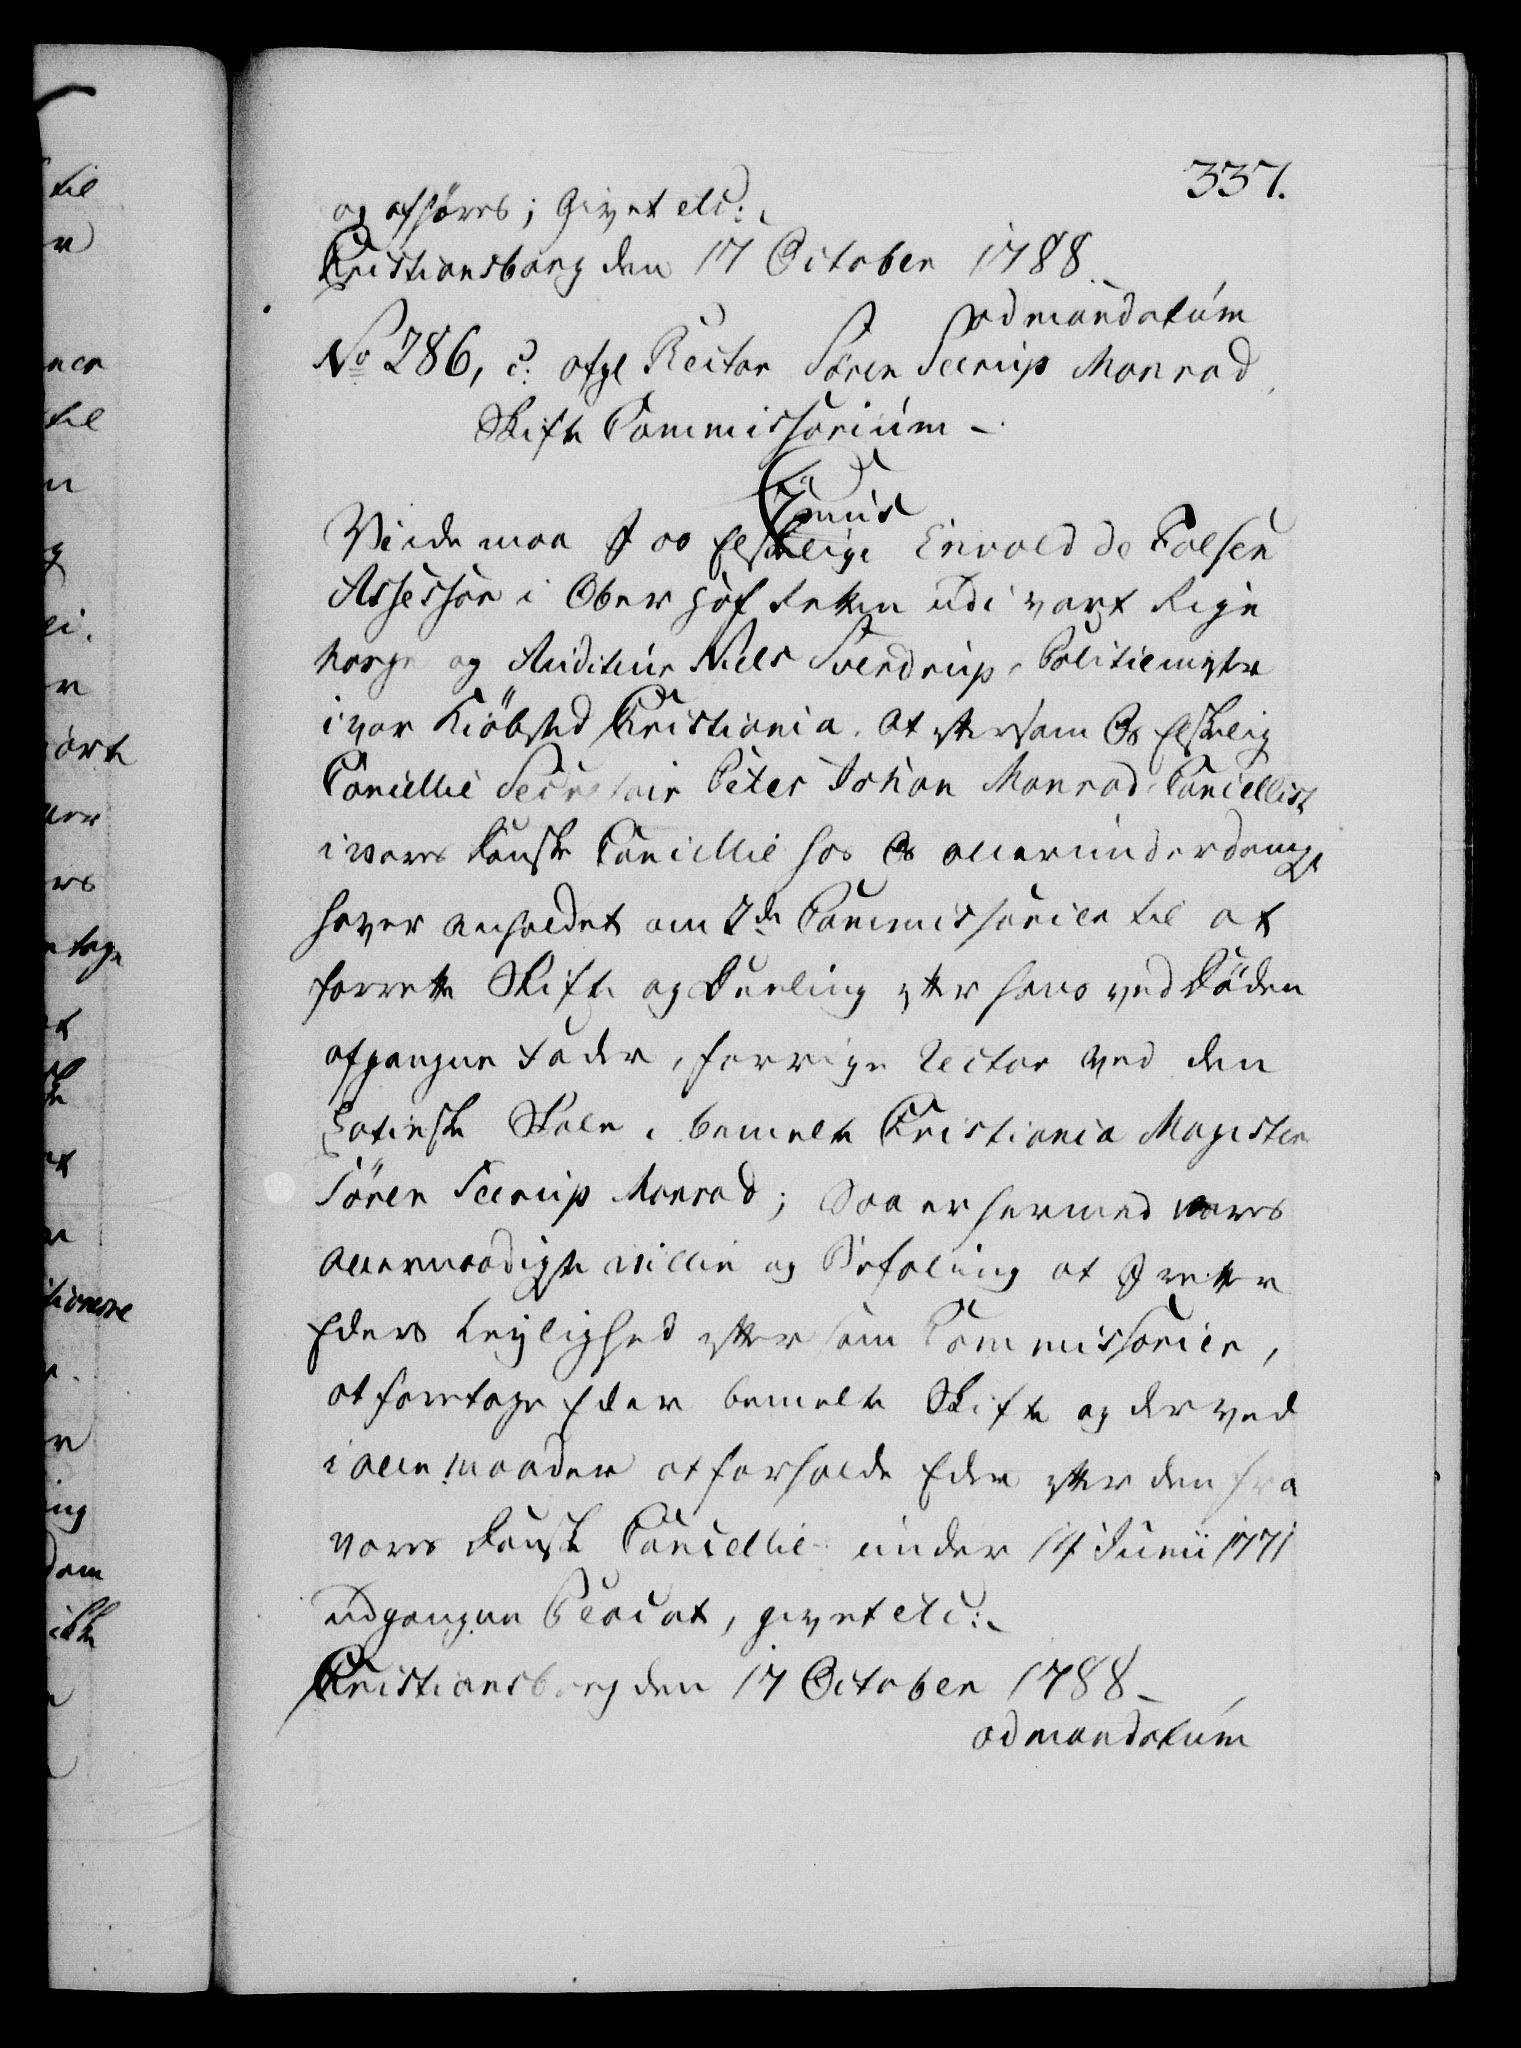 337.
og afhøres; Givet etc:
Christiansborg den 17 October 1788
ad mandatum
No 286, C. afgl Rector Søren Seerup Monrad
Skifte Commissorium
C7mus
Viide maa I os Elskelige Envold de Falsen
Assessor i Ober Hof Retten udi vort Rige
Norge og Auditeur Niels Sverdrup, Politiemester
i vor Kiöbsted Christiania. At eftersom Os Elskelig
Cancellie Secretair Peter Johan Monrad Cancellist
i vores Danske Cancellie hos Os allerunderdanigst
haver anholdet om 2de Commissarier til at
forrette Skifte og Deeling efter hans ved Döden
afgangne Fader, forrige Rector ved den
Latinske Skole i bemelte Christiania Magister
Sören Seerup Monrad; Saa er hermed vores
allernaadigste villie og Befaling at I retter
Eders Leylighed efter som Commissarier,
at foretage Eder bemelte Skifte og derved
i alle maader at forholde Eder efter den fra
vores Danske Cancellie under 14 Junii 1771
udgangne Placat, givet etc:
Christiansborg den 17 October 1788
ad mandatum
til
ner
til
n
g
ei.
ört
ers
tage
tionerne
ing
dom
ikke